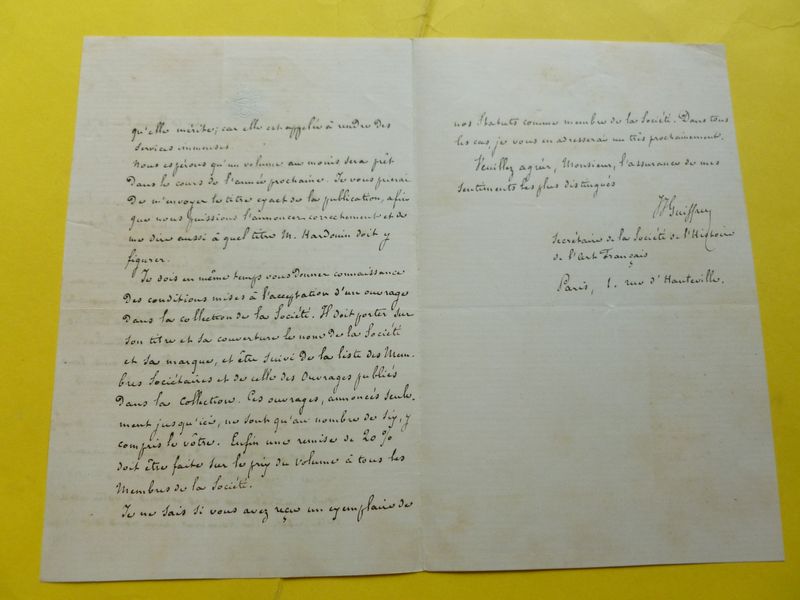 qu'elle mérite; car elle est appelée à rendre des
services immenses.
Nous espérons qu'un volume au moins sera prêt
dans le cours de l'année prochaine. Je vous prierai
de m'envoyer le titre exact de la publication, afin
que nous puissions l'annoncer correctement et de
me dire aussi à quel titre M. Hardouin doit y
figurer.
Je dois en même temps vous donner connaissance
des conditions mises à l'acceptation d'un ouvrage
dans la collection de la Société. Il doit porter sur
son titre et sa couverture le nom de la Société
et sa marque, et être suivi de la liste des Mem-
bres Sociétaires et de celle des Ouvrages publiés
dans la Collection. Ces ouvrages, annoncés seule
ment jusqu'ici, ne sont qu'au nombre de six, y
compris le vôtre. Enfin une remise de 20%
doit être faite sur le prix du volume à tous les
Membres de la Société.
Je ne sais si vous avez reçu un exemplaire de
nos Statuts comme membre de la Société. Dans tous
les cas, je vous en adresserai un très prochainement.
Veuillez agréer, Monsieur, l'assurance de mes
sentiments les plus distingués
JJ Guiffrey
Secrétaire de la Société de l'Histoire
de l'Art Français
Paris, 1. rue d'Hauteville.